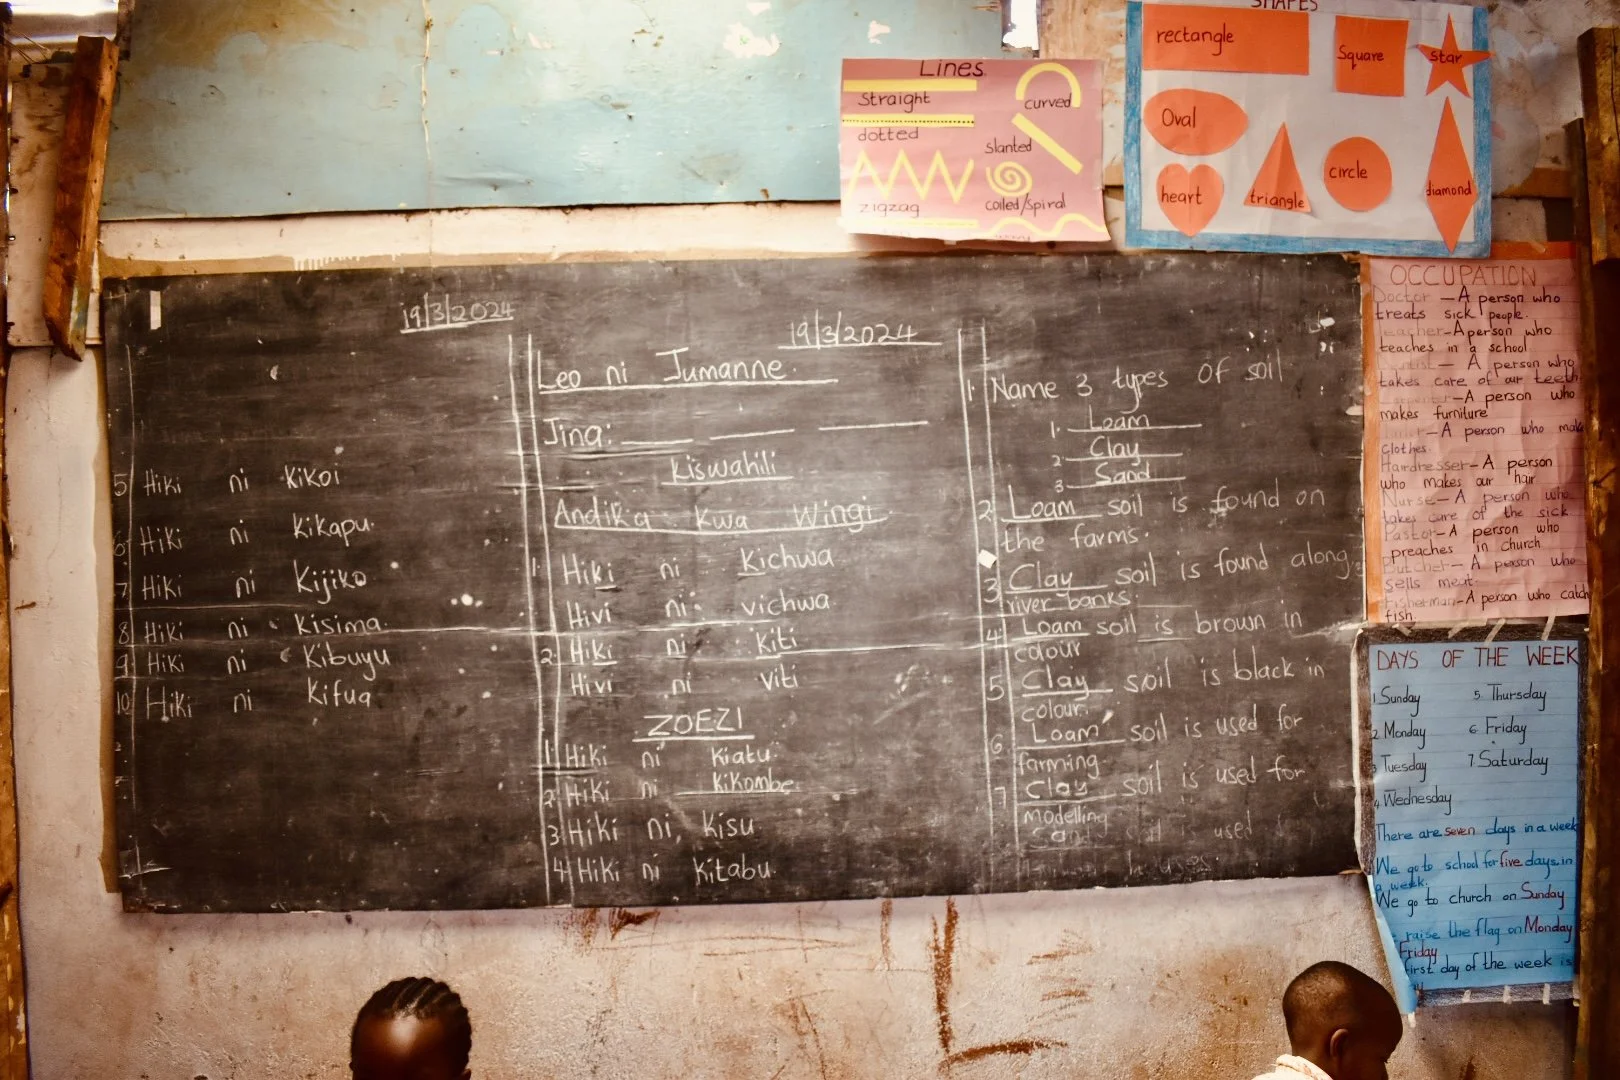 19/3/2024
5 Hiki ni Kikoi
6 Hiki ni Kikapu.
7 Hiki ni Kijiko
8 Hiki ni Kisima
9 Hiki ni Kibuyu
10 Hiki ni Kifua
19/3/2024
Leo ni Jumanne.
Jina:
Kiswahili
Andika Kwa Wingi
1. Hiki ni Kichwa
Hivi ni vichwa
2. Hiki ni Kiti
Hivi ni viti
ZOEZI
1. Hiki ni Kiatu
2. Hiki ni Kikombe
3 Hiki ni, Kisu
4 Hiki ni Kitabu
1. Name 3 types of soil
1. Loam
2 Clay
3 Sand
2 Loam soil is found on
the farms.
3 Clay soil is found along
river banks.
4 Loam soil is brown in
colour
5 Clay soil is black in
colour.
6 Loam soil is used for
farming.
7 Clay soil is used for
modelling
Sand soil is used
Lines
Straight
curved
dotted
slanted
zigzag
coiled/spiral
SHAPES
rectangle
Square
star
Oval
circle
heart
triangle
diamond
OCCUPATION
Doctor - A person who
treats sick people.
Teacher - A person who
teaches in a school
- A person who
takes care of our teeth
- A person who
makes furniture
- A person who
clothes.
Hairdresser - A person
who makes our hair
Nurse - A person who
takes care of the sick
Pastor - A person who
preaches in church
Butcher - A person who
sells meat.
Fisherman - A person who catch
fish.
DAYS OF THE WEEK
1 Sunday
2 Monday
3 Tuesday
4 Wednesday
5. Thursday
6 Friday
7 Saturday
There are seven days in a week
We go to school for five days in
a week.
We go to church on Sunday
raise the flag on Monday
Friday
first day of the week is